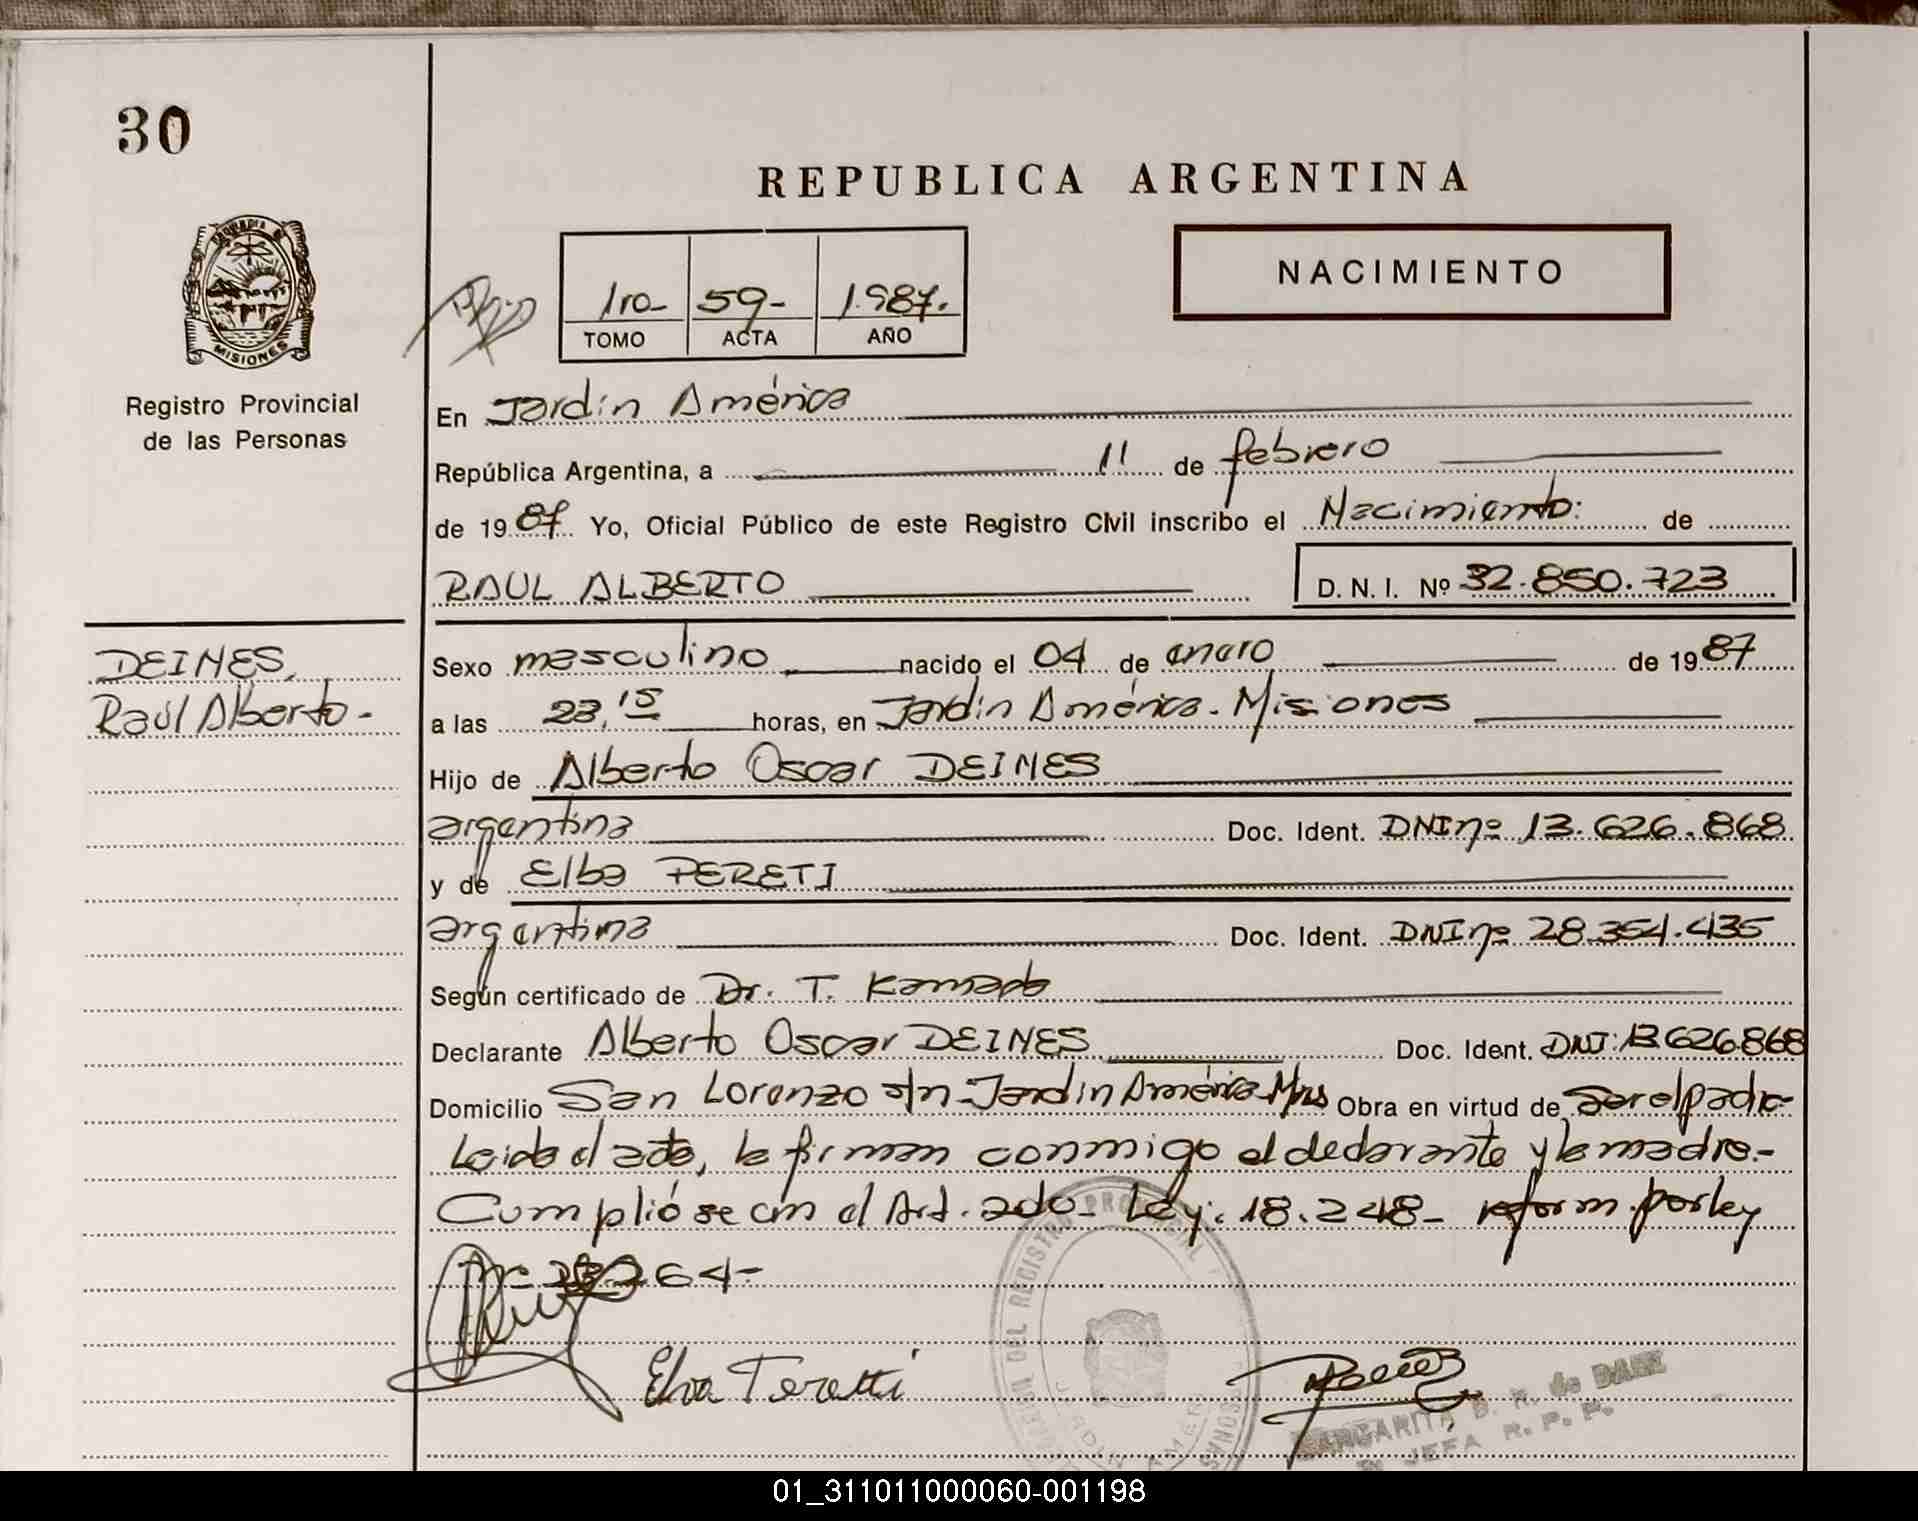 30
REPUBLICA ARGENTINA
NACIMIENTO
1ro- 59- 1.987.
TOMO ACTA AÑO
MISIONES
Registro Provincial
de las Personas
En Jardín América
República Argentina, a 11 de febrero
de 1987. Yo, Oficial Público de este Registro Civil inscribo el Nacimiento: de
RAUL ALBERTO D. N. I. Nº 32.850.723
DEINES,
Raúl Alberto-
Sexo masculino nacido el 04 de enero de 1987
a las 23,15 horas, en Jardín América. Misiones
Hijo de Alberto Oscar DEINES
argentina Doc. Ident. DNI nº 13.626.868
y de Elba PERETI
argentina Doc. Ident. DNI nº 28.354.435
Según certificado de Dr. T. Kamada
Declarante Alberto Oscar DEINES Doc. Ident. DNI: 13626868
Domicilio San Lorenzo s/n-Jardín América-Mnes Obra en virtud de ser el padre-
Leída el acta, la firman conmigo el declarante y la madre.-
Cumplióse con el Art. 2do- Ley: 18.248- reform. por ley
264-
Elva Peretti
MARGARITA B. R. de DANE
JEFA R. P. P.
DEL REGISTRO PROVINCIAL
JARDIN AMER
01_311011000060-001198